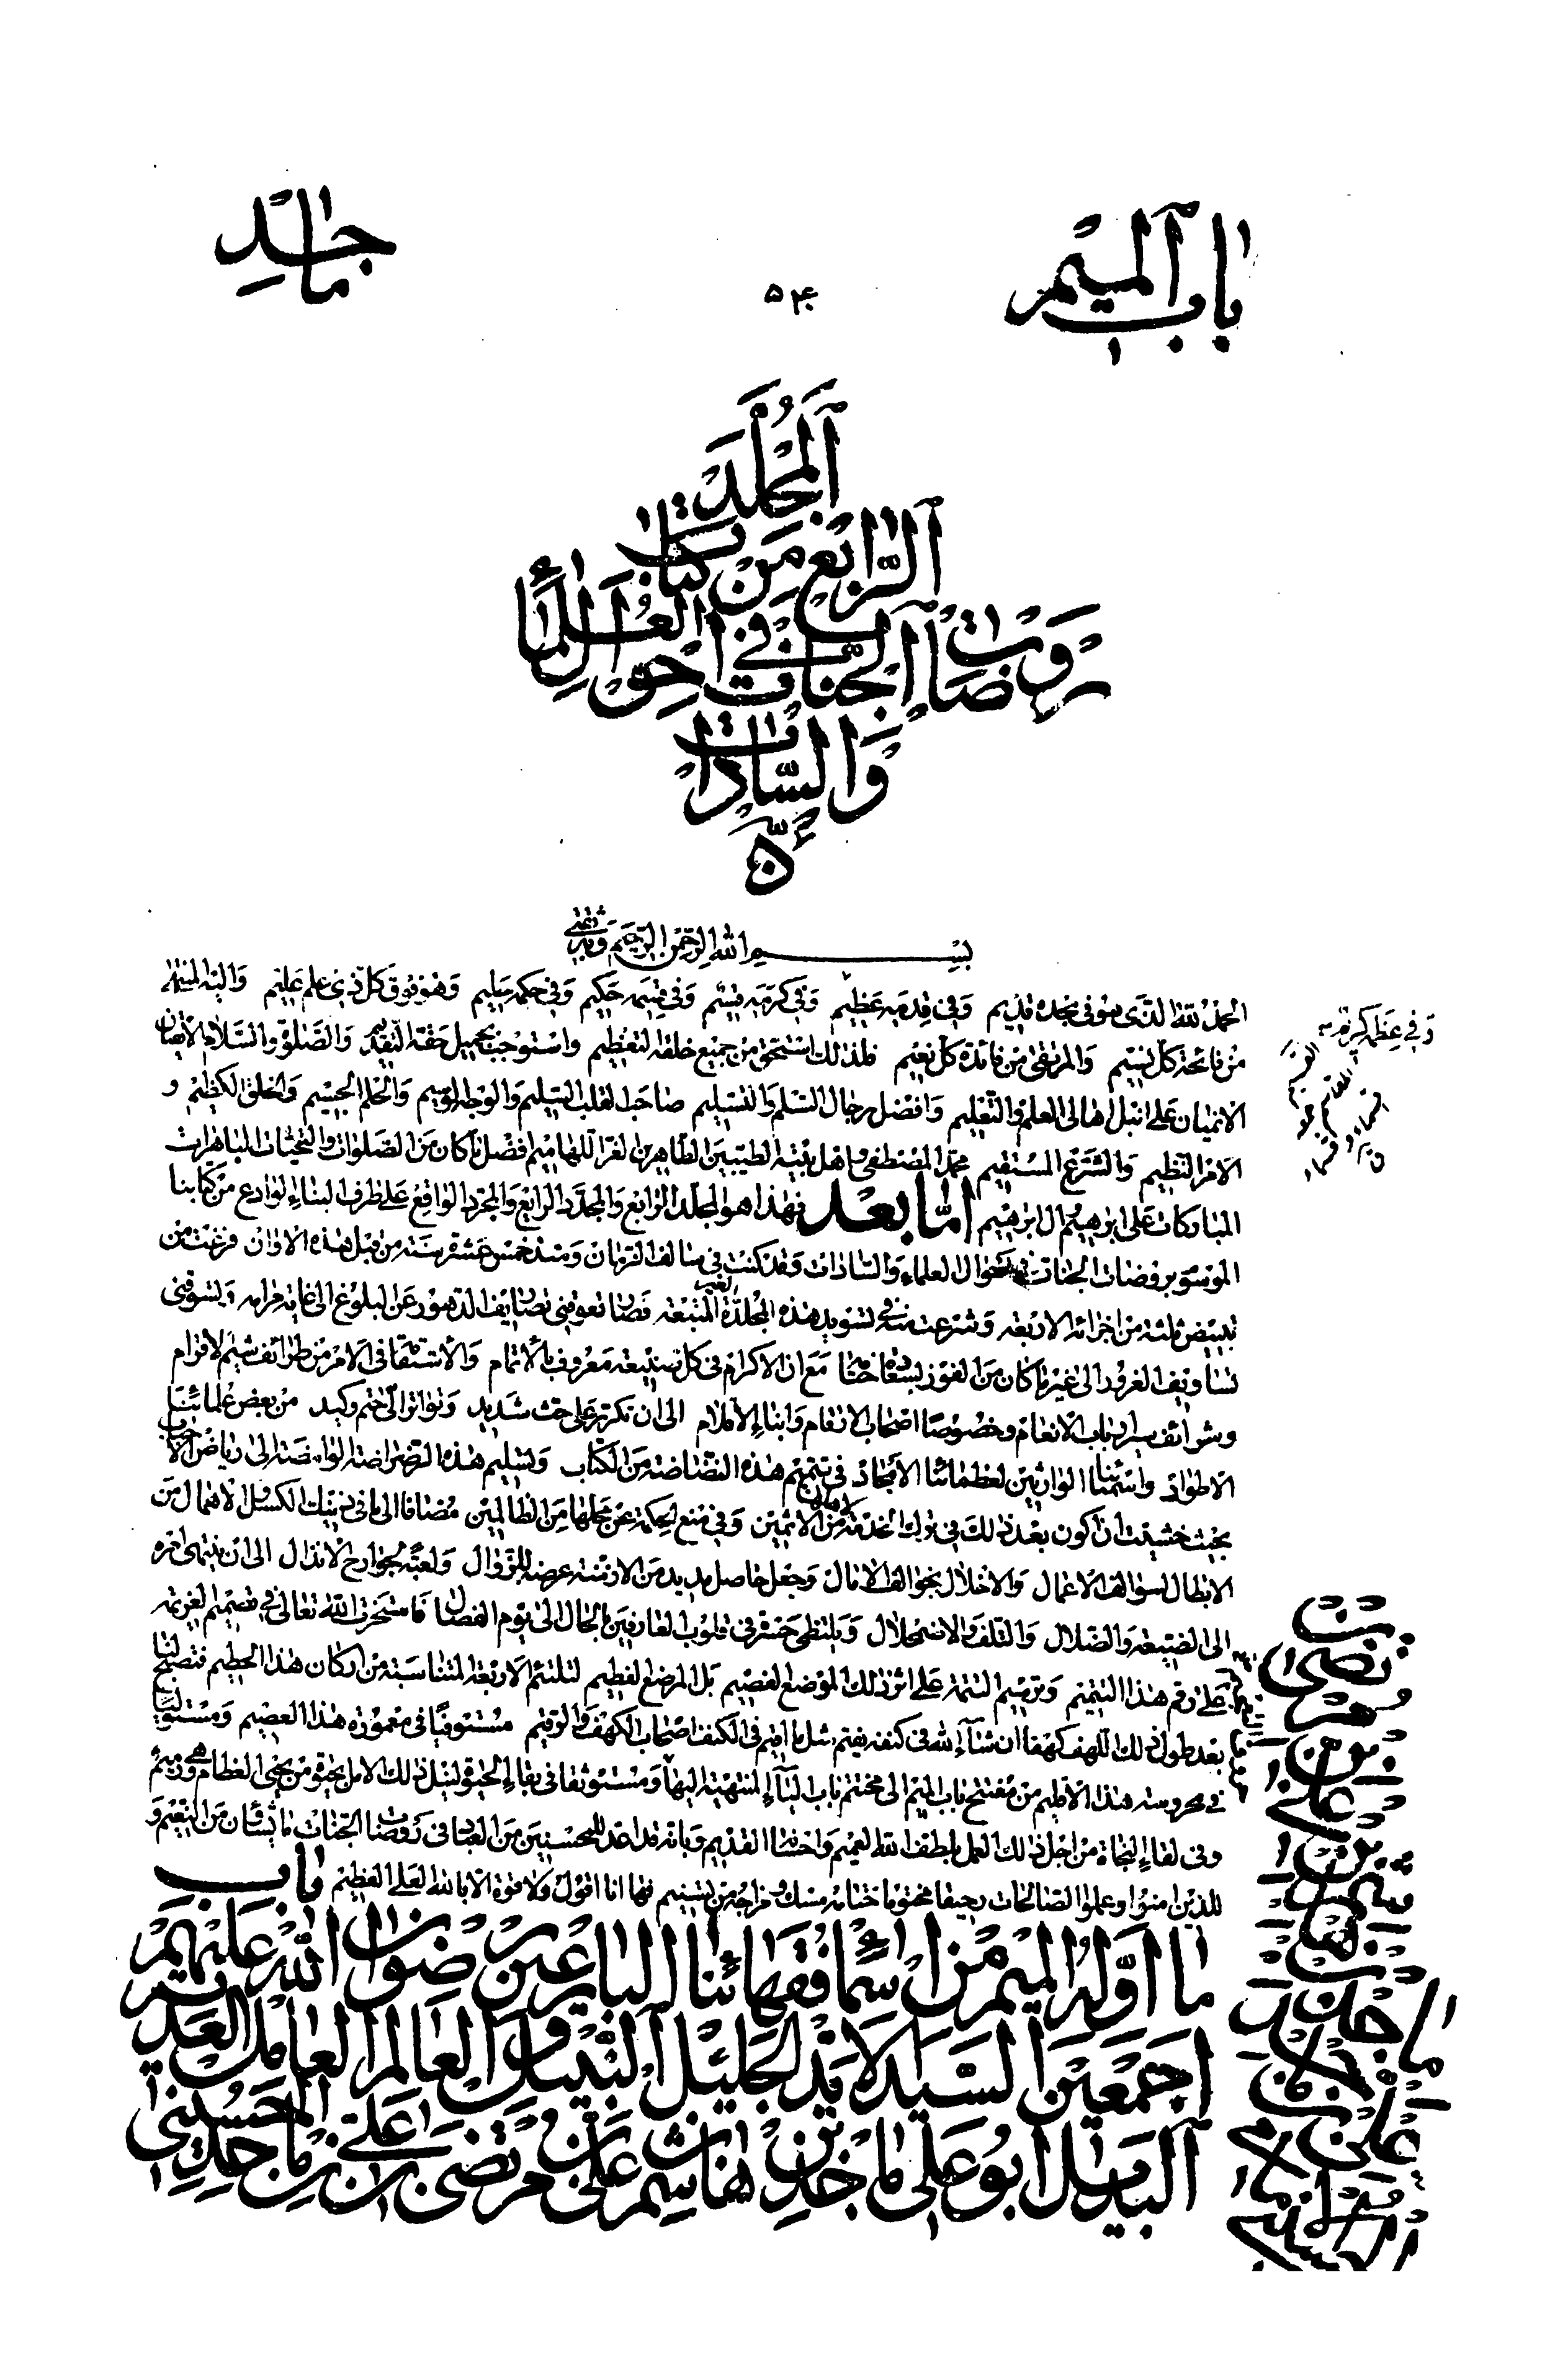 باب الميم
ماجد
٥٤٠
المجلد
الرابع من كتاب
روضات الجنات في احوال العلماء
والسادات
بسم الله الرحمن الرحيم وبه ثقتي
الحمد لله الذي هو في مجده قديم وفي قدمه عظيم وفي كرمه قسيم وفي قسمه حكيم وفي حكمه سليم وهو فوق كل ذي علم عليم واليه المنتهى
من فاتحة كل نسيم والمرتقى من فائدة كل نعيم فلذلك استحق من جميع خلقه التعظيم واستوجب بجميل حقه التقديم والصلوة والسلام
الانميان على انبل اهالي العلم والتعليم وافضل رجال السلم والتسليم صاحب القلب السليم والوجه الوسيم والحلم الجسيم والخلق الكظيم و
الامر النظيم والشرع المستقيم محمد المصطفى واهل بيته الطيبين الطاهرين الغر اللهاميم افضل ما كان من الصلوات والتحيات المباهرات
المباركات على ابرهيم وال ابرهيم اما بعد فهذا هو المجلد الرابع والمجدد الرابع والمجرد الواقع على طرف البناء الوادع من كتابنا
الموسوم بروضات الجنات في احوال العلماء والسادات وقد كنت في سالف الزمان ومنذ خمس عشرة سنة من قبل هذه الاوان فرغت من
تبييض ثلثة من اجزائه الاربعة وشرعت في تسويد هذه المجلدة المتبعة فصار تعوقني تصاريف الدهور عن البلوغ الى غاية مرامه ويسوقني
تساويف الغرور الى غير ما كان من الفوز بسعادة ختامه مع ان الاكرام في كل صنيعة معروف بالاتمام والاستيفاء في الامر من طرائف شيم الاقوام
وشرائف سير ارباب الانعام وخصوصا اصحاب الارقام وابناء الاقلام الى ان تكرر علي حث شديد وتواتر الي ختم وكيد من بعض علمائنا
الاطواد وامثنا الوارثين لعظمائنا الامجاد في تتميم هذه الفضاضة من الكتاب وتسليم هذه القراضة الوامضة الى رياض الاحباب
بحيث خشيت ان اكون بعد ذلك في ترك الخدمة من الاثمين وفي منع الحكمة عن محلها من الظالمين مضافا الى ما في ذينك الكسل والاهمال من
الابطال لسوالف الاعمال والاخلال بخوالف الامال وجعل حاصل مديد من الازمنة عرضة للزوال ولعبة لجوارح الانذال الى ان ينتهي امره
الى الضيعة والضلال والتلف والاضمحلال ويلتظى حسرة في قلوب العارفين بالحال الى يوم الفصال فاستخرت الله تعالى في تصميم العزيمة
على رقم هذا التتميم وترسيم التتمة على اثر ذلك الموضع الفصيم بل المرضع الفطيم لتلتئم الاربعة المتناسبة من اركان هذا الحطيم فتصبح لنا
بعد طول ذلك اللهف كهفا ان شاء الله في كنفه يقيم مثل ما اقيم في الكنف اصحاب الكهف والرقيم مستوفيا في معمورة هذا العصيم ومستوليا
في محروسة هذا الاقليم من مفتتح باب الميم الى مختتم باب الياء المنتهية اليها ومستوثقا في بقاء الحيوة لنيل ذلك الامل بحيوة من يحيي العظام وهي رميم
وفي لقاء النجاة من اجل ذلك العمل بلطف الله العميم واحسانه القديم وبانه قد اعد للمحسنين من العباد في روضات الجنات ما يشاؤن من النعيم و
للذين امنوا وعملوا الصالحات رحيقا مختوما ختامه مسك ومزاجه من تسنيم فها انا اقول ولا قوة الا بالله العلي العظيم باب
ما اوله الميم من اسماء فقهائنا البارعين رضوان الله عليهم
اجمعين السيد الايد الجليل النبيل والعالم العامل العديم
البديل ابو علي ماجد بن هاشم بن علي بن مرتضى بن علي بن ماجد الحسيني
بن
مرتضى
بن
علي
بن
ماجد